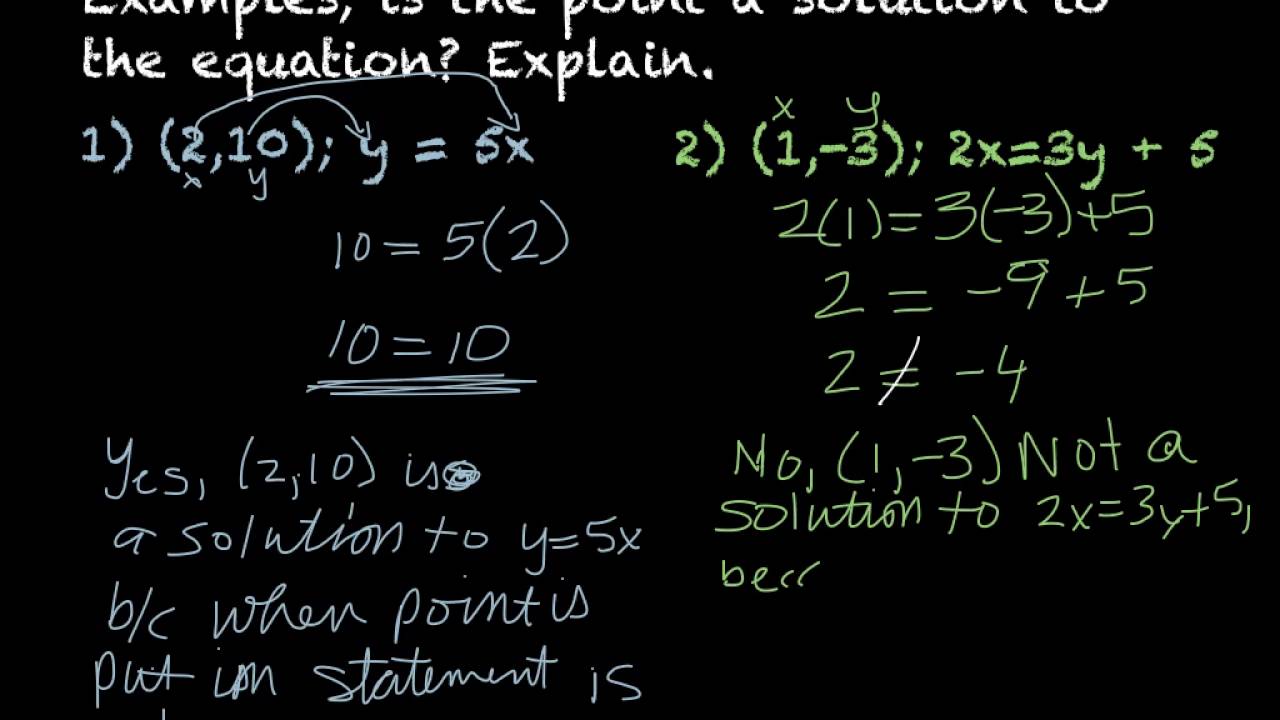 Examples, is the point a solution to
the equation? Explain.
1) (2,10); y = 5x
x y
10 = 5(2)
10 = 10
Yes, (2,10) is
a solution to y=5x
b/c when point is
put in statement is
x y
2) (1,-3); 2x=3y + 5
2(1)=3(-3)+5
2 = -9+5
2 ≠ -4
No, (1,-3) Not a
solution to 2x=3y+5,
bec